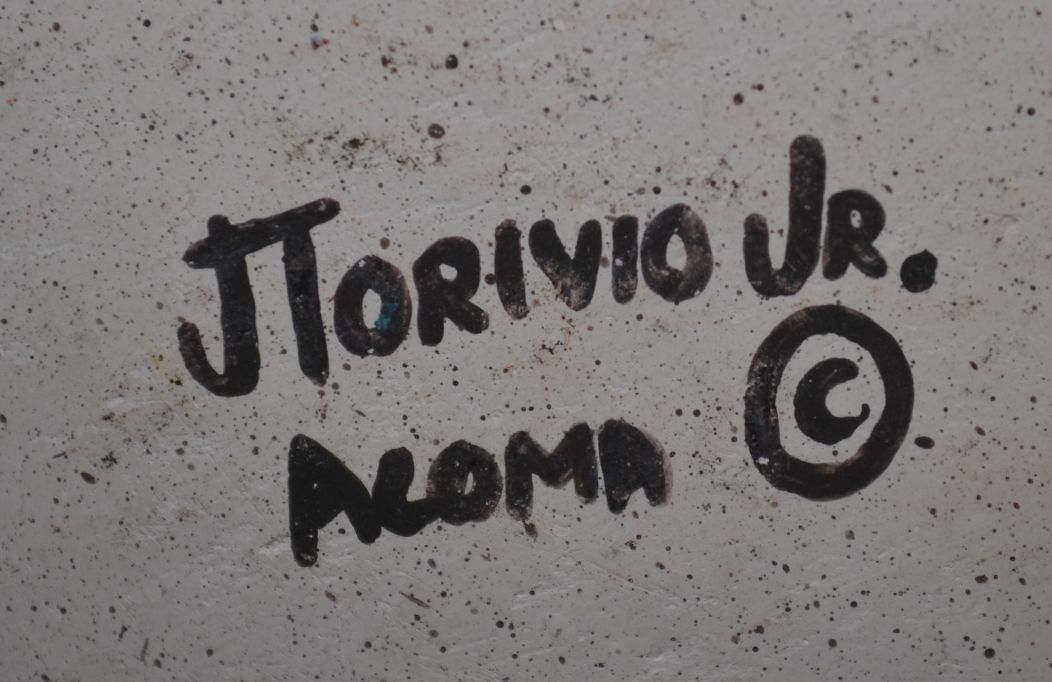 JTORIVIO JR.
ACOMA ©